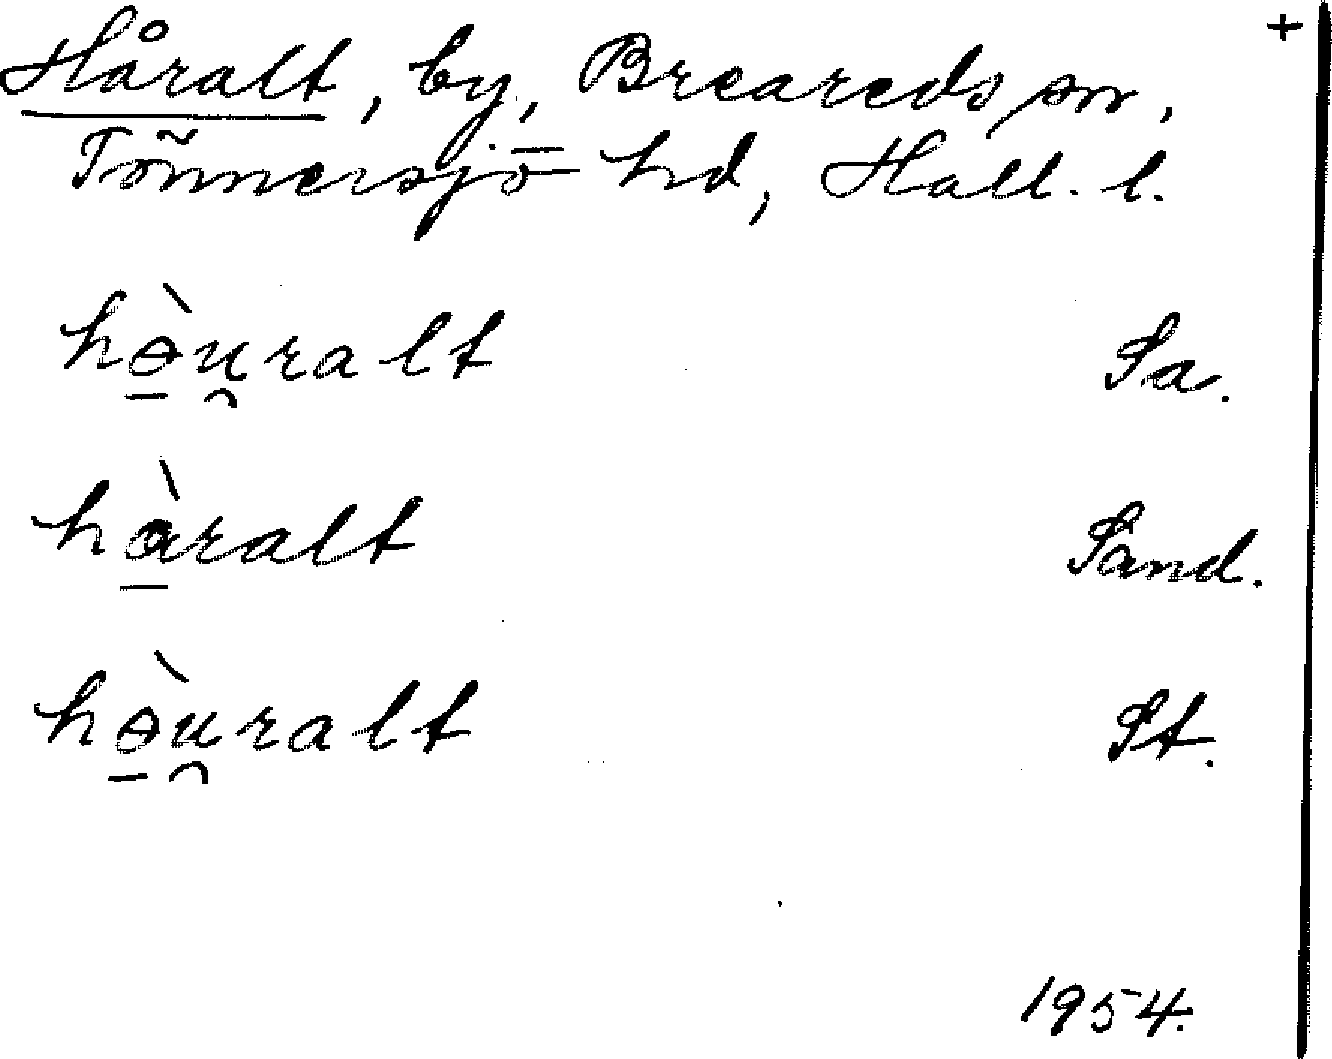 +
Håralt, by, Breareds sn,
Tönnersjö hd, Hall. l.
hə̱̀u̯ralt Sa.
hɑ̱̀ralt Sand.
hə̱̀u̯ralt St.
1954.